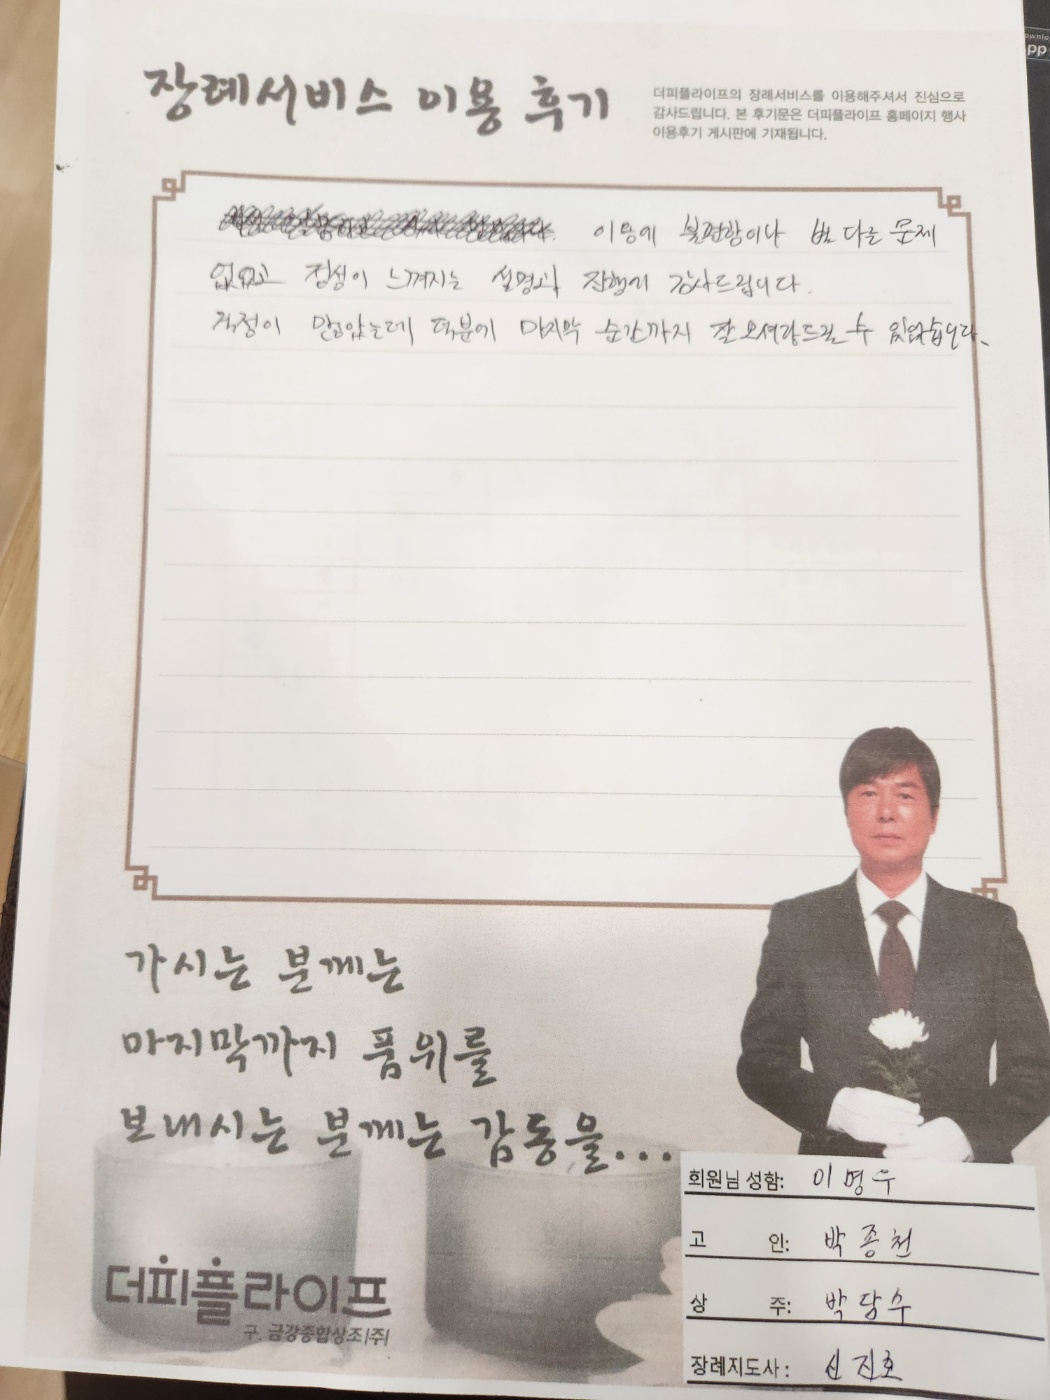 장례서비스 이용 후기
더피플라이프의 장례서비스를 이용해주셔서 진심으로
감사드립니다. 본 후기문은 더피플라이프 홈페이지 행사
이용후기 게시판에 기재됩니다.
이용에 불편함이나 별 다른 문제
없었고 정성이 느껴지는 설명과 진행에 감사드립니다.
걱정이 많았는데 덕분에 마지막 순간까지 잘 모셔다드릴 수 있었습니다.
가시는 분께는
마지막까지 품위를
보내시는 분께는 감동을...
더피플라이프
구. 금강종합상조(주)
회원님 성함: 이명우
고 인: 박종천
상 주: 박담수
장례지도사: 신진호